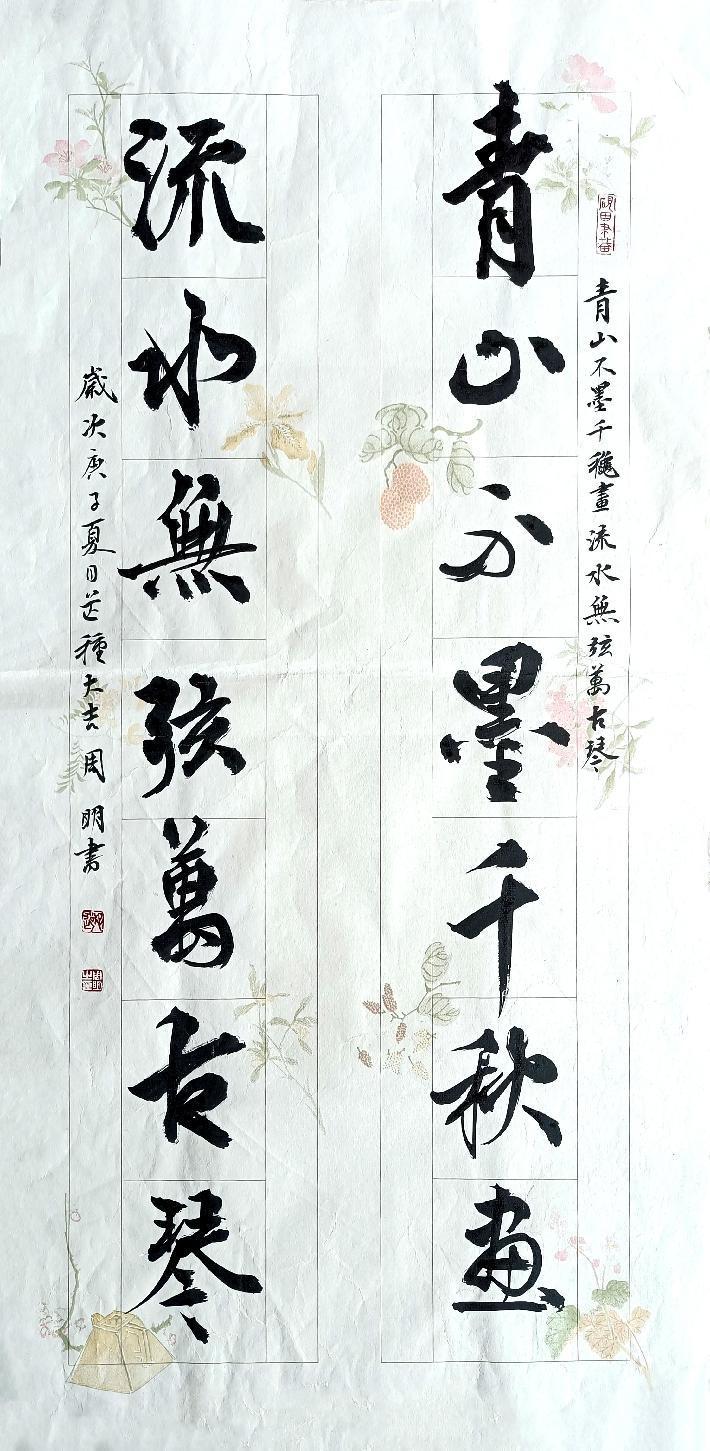 青山不墨千秋畫
流水無弦萬古琴
青山不墨千龝畫 流水無弦萬古琴
歲次庚子夏日芒種大吉周明書